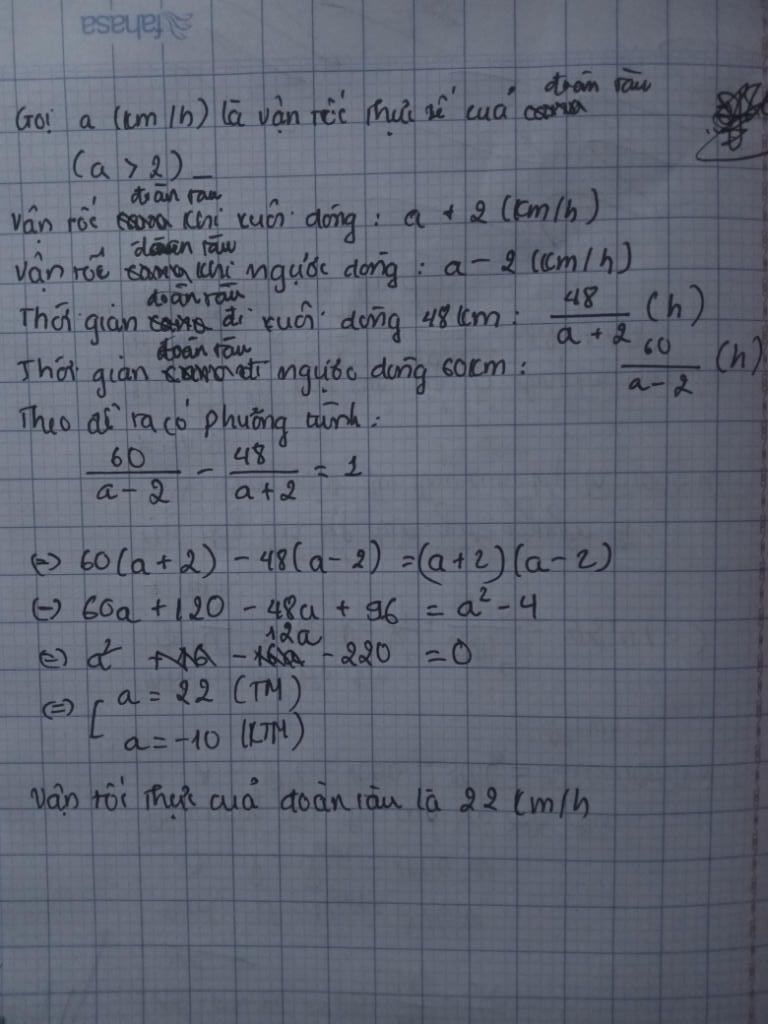 fahasa
Gọi a (km/h) là vận tốc thực tế của đoàn tàu
(a > 2)
Vận tốc đoàn tàu khi xuôi dòng : a + 2 (km/h)
Vận tốc đoàn tàu khi ngược dòng : a - 2 (km/h)
Thời gian đoàn tàu đi xuôi dòng 48 km : 48/(a + 2) (h)
Thời gian đoàn tàu đi ngược dòng 60 km : 60/(a - 2) (h)
Theo đề ra có phương trình :
60/(a - 2) - 48/(a + 2) = 1
(=) 60(a + 2) - 48(a - 2) = (a + 2)(a - 2)
(=) 60a + 120 - 48a + 96 = a² - 4
(=) a² - 12a - 220 = 0
(=) [ a = 22 (TM)
a = -10 (KTM)
Vận tốc thực của đoàn tàu là 22 km/h